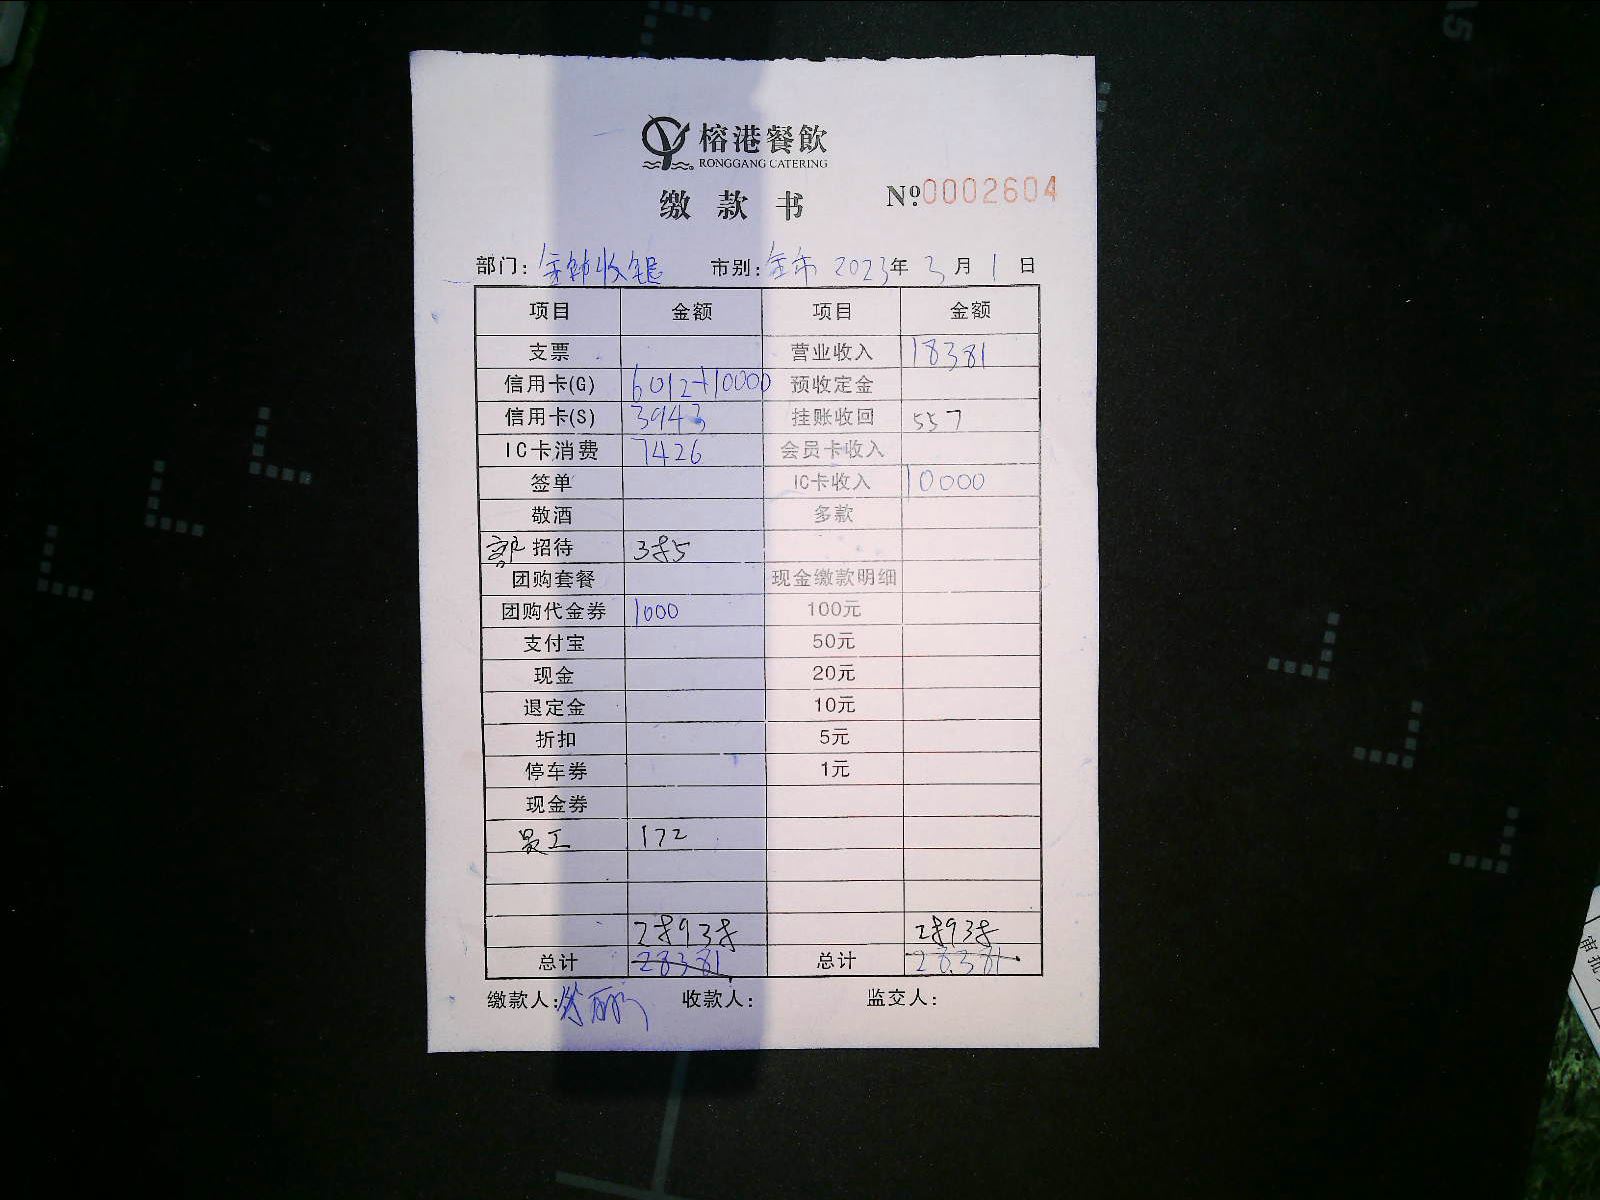 榕港餐飲
RONGGANG CATERING
缴款书 №.0002604
部门: 金钟收银 市别: 全市 2023年 3月 1日
项目 金额 项目 金额
支票 营业收入 18381
信用卡(G) 6012+10000 预收定金
信用卡(S) 3943 挂账收回 557
IC卡消费 7426 会员卡收入
签单 IC卡收入 10000
敬酒 多款
客户招待 385
团购套餐 现金缴款明细
团购代金券 1000 100元
支付宝 50元
现金 20元
退定金 10元
折扣 5元
停车券 1元
现金券
员工 172
28938 28938
总计 28381 总计 28381
缴款人: 收款人: 监交人:
审批